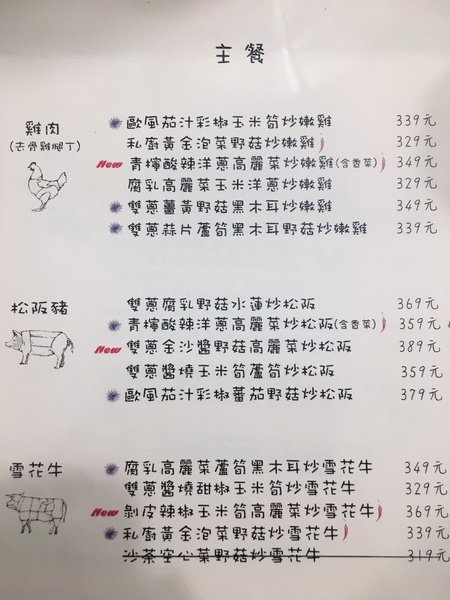 主餐
雞肉
(去骨雞腿丁)
歐風茄汁彩椒玉米筍炒嫩雞 339元
私廚黃金泡菜野菇炒嫩雞 329元
New 青檸酸辣洋蔥高麗菜炒嫩雞(含香菜) 349元
腐乳高麗菜玉米洋蔥炒嫩雞 329元
雙蔥薑黃野菇黑木耳炒嫩雞 349元
雙蔥蒜片蘆筍黑木耳野菇炒嫩雞 339元
松阪豬
雙蔥腐乳野菇水蓮炒松阪 369元
青檸酸辣洋蔥高麗菜炒松阪(含香菜) 359元
New 雙蔥金沙醬野菇高麗菜炒松阪 389元
雙蔥醬燒玉米筍蘆筍炒松阪 359元
歐風茄汁彩椒蕃茄野菇炒松阪 379元
雪花牛
腐乳高麗菜蘆筍黑木耳炒雪花牛 349元
雙蔥醬燒甜椒玉米筍炒雪花牛 329元
New 剝皮辣椒玉米筍高麗菜炒雪花牛 369元
私廚黃金泡菜野菇炒雪花牛 339元
沙茶空心菜野菇炒雪花牛 319元